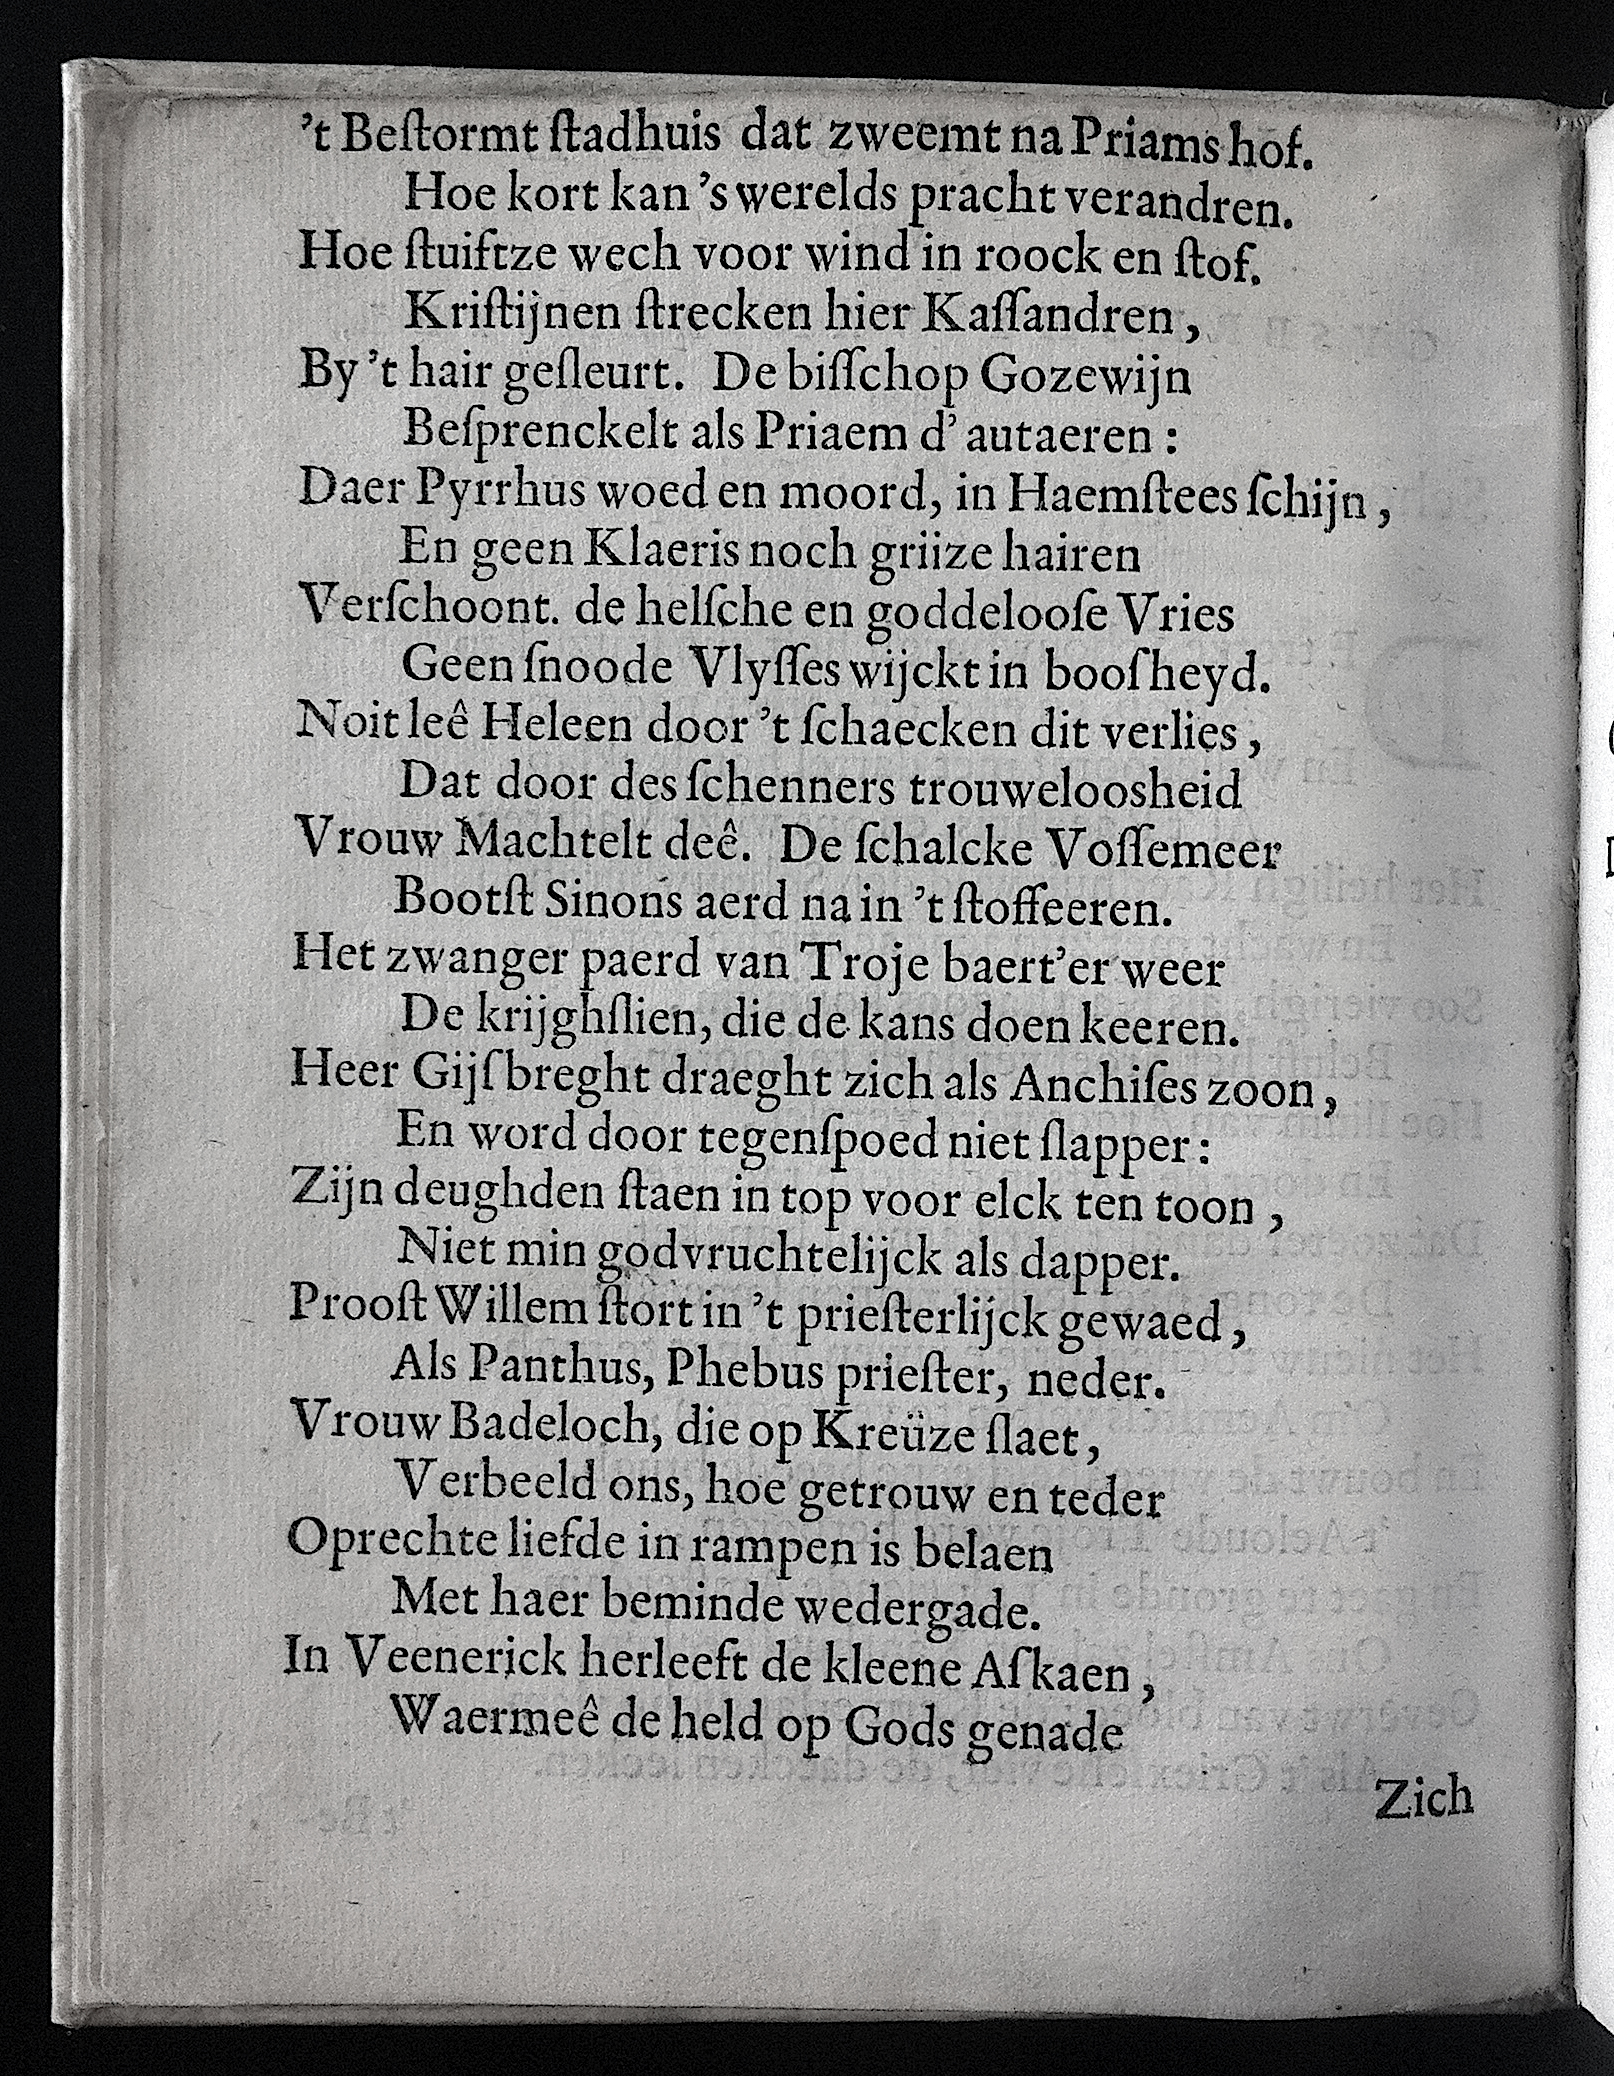 't Beſtormt ſtadhuis dat zweemt na Priams hof.
Hoe kort kan 's werelds pracht verandren.
Hoe ſtuiftze wech voor wind in roock en ſtof.
Kriſtijnen ſtrecken hier Kaſſandren,
By 't hair geſleurt. De biſſchop Gozewijn
Beſprenckelt als Priaem d' autaeren:
Daer Pyrrhus woed en moord, in Haemſtees ſchijn,
En geen Klaeris noch griize hairen
Verſchoont. de helſche en goddelooſe Vries
Geen ſnoode Vlyſſes wijckt in booſheyd.
Noit leê Heleen door 't ſchaecken dit verlies,
Dat door des ſchenners trouweloosheid
Vrouw Machtelt deê. De ſchalcke Voſſemeer
Bootſt Sinons aerd na in 't ſtoffeeren.
Het zwanger paerd van Troje baert'er weer
De krijghſlien, die de kans doen keeren.
Heer Gijſbreght draeght zich als Anchiſes zoon,
En word door tegenſpoed niet ſlapper:
Zijn deughden ſtaen in top voor elck ten toon,
Niet min godvruchtelijck als dapper.
Prooſt Willem ſtort in 't prieſterlijck gewaed,
Als Panthus, Phebus prieſter, neder.
Vrouw Badeloch, die op Kreüze ſlaet,
Verbeeld ons, hoe getrouw en teder
Oprechte liefde in rampen is belaen
Met haer beminde wedergade.
In Veenerick herleeft de kleene Aſkaen,
Waermeê de held op Gods genade
Zich